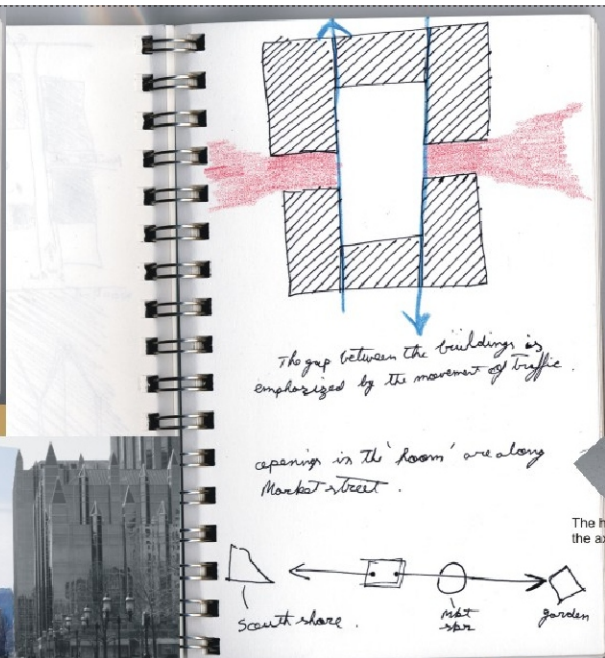 The gap between the buildings is
emphasized by the movement of traffic.
openings in the 'room' are along
Market street.
South shore.
mkt
sqr
garden
The h
the ax